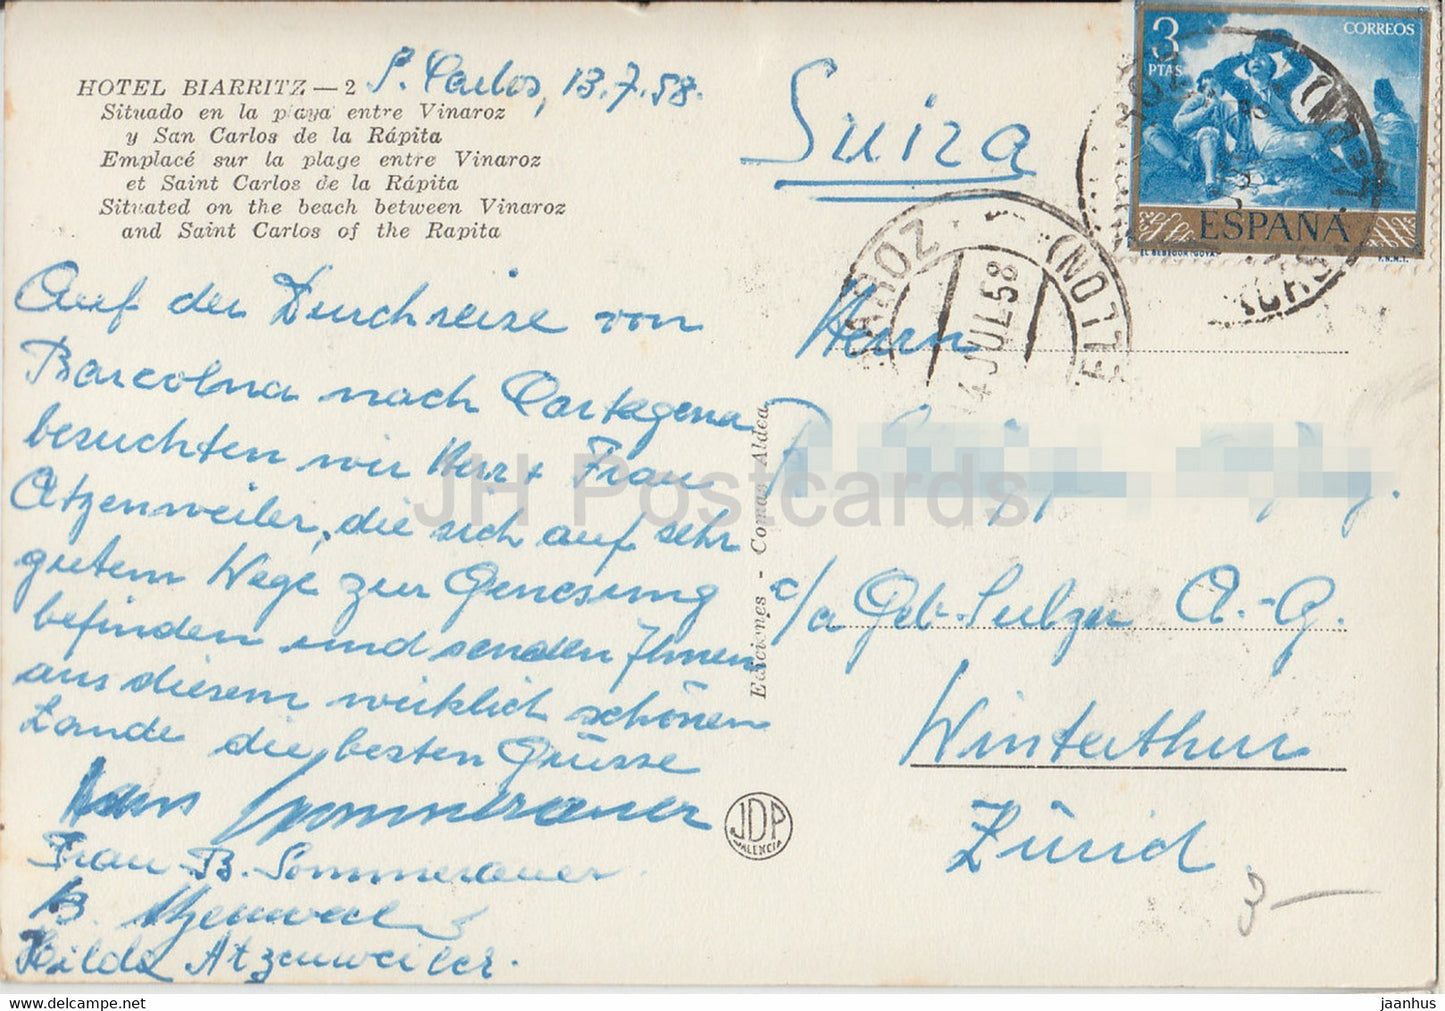 HOTEL BIARRITZ — 2
S. Carlos, 13.7.58.
Situado en la playa entre Vinaroz
y San Carlos de la Rápita
Emplacé sur la plage entre Vinaroz
et Saint Carlos de la Rápita
Situated on the beach between Vinaroz
and Saint Carlos of the Rapita
Auf der Durchreise von
Barcolna nach Cartagena
besuchten wir Herr + Frau
Atzenweiler, die sich auf sehr
gutem Wege zur Genesung
befinden und senden Ihnen
aus diesem wirklich schönen
Lande die besten Grüsse
Hans Sommerauer
Frau B. Sommerauer
B. Atzenweiler
Hilda Atzenweiler.
Ediciones - Comas Aldea
JDP
VALENCIA
Suiza
3
PTAS
CORREOS
ESPAÑA
EL BEBEDOR (GOYA)
F.N.M.T.
14 JUL 58
Herrn
c/a Geb. Sulzer A.-G.
Winterthur
Zürich
3 —
JH Postcards
https://www.delcampe.net
jaanhus